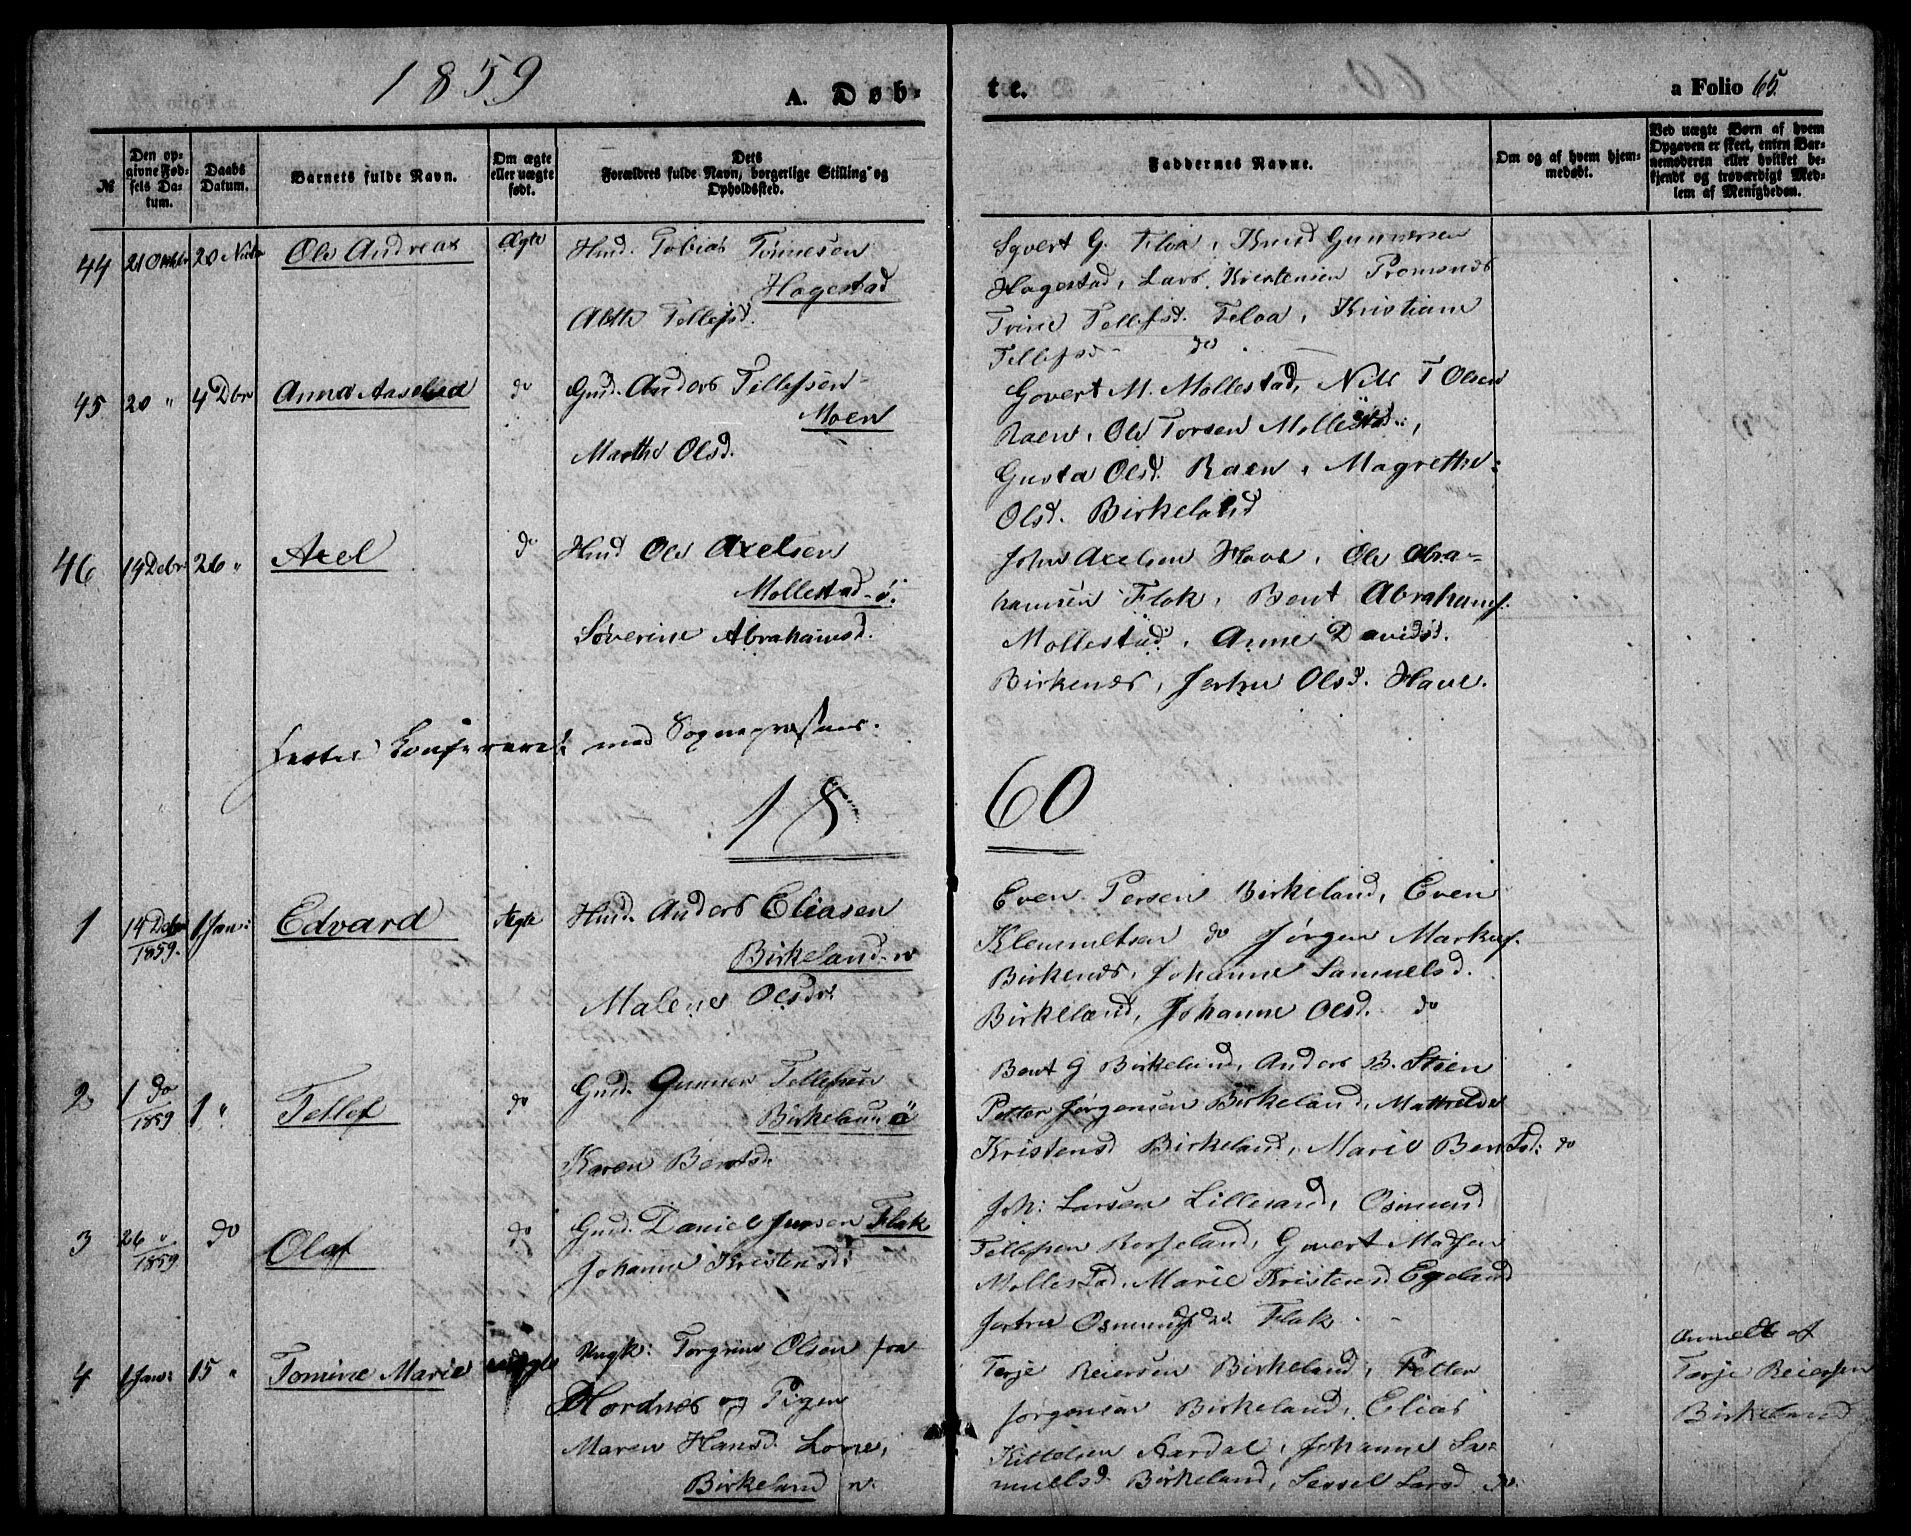 1859
A. Døb-
te.
a Folio 65.
№
Den op-
givne Fød-
sels Da-
tum.
Daabs
Datum.
Barnets fulde Navn.
Om ægte
eller uægte
født.
Dets
Forældres fulde Navn, borgerlige Stilling og
Opholdssted.
Faddernes Navne.
Om og af hvem hjem-
medøbt.
Ved uægte Børn af hvem
Opgaven er skeet, enten Bar-
nemoderen eller hvilket be-
kjendt og troværdigt Med-
lem af Menigheden.
44 21 Oktbr 20 Nvbr Ole Andreas Ægte Husd. Tobias Tønnesen
Hagestad
Tellefsd.
Syvert G. Floa, Knud Gunnersen
Hagestad, Lars Kristensen Tromsnes
Trine Tellefsd. Floa, Kristiane
Tellefsd do
45 20 " 4 Dbr Anna Aaselied do Gmd. Anders Tellefsen
Moen
Marthe Olsd.
Govert M. Mollestad, Nils T Olsen
Raen, Ole Torsen Mollestad,
Gusta Olsd. Raen, Magrethe
Olsd. Birkeland
46 14 Debr 26 " Axel do Husd Ole Axelsen
Mollestad ö.
Søverine Abrahamsd.
John Axelsen Have, Ole Abra-
hamsen Flak, Bent Abrahamsf.
Mollestad, Anne Davidsd.
Birkenes, Jertru Olsd. Have.
Konfereret med Sognepræstens.
18
60
1 14 Debr
1859. 1 Jan: Edvard Ægte Husd. Anders Eliasen
Birkeland n
Malene Olsdr.
Even Persen Birkeland, Even
Klemmetsen do Jørgen Markusf.
Birkenes, Johanne Samuelsd.
Birkeland, Johanne Olsd. do
2 1 do
1859 1 " Tellef do Gmd. Gunner Tellefsen
Birkeland ö
Karen Bentsd.
Bent G Birkeland, Anders B. Steen
Petter Jørgensen Birkeland, Mathilde
Kristensd Birkeland, Marie Bentsd: do
3 26 "
1859 do Olaf do Gmd. Daniel Jensen Flak
Johanne Kristensd:
Joh: Larsen Lillesand, Osmund
Tellefsen Rosseland, Govert Madsen
Mollestad, Marie Kristensd Egeland
Jertru Osmundsd. Flak
4 1 Jan: 15 " Tomine Marie uægte Ungk: Torgrim Olsen fra
Hordnes og Pigen
Maren Hansd. Lone,
Birkeland n.
Terje Reiersen Birkeland, Petter
Jørgensen Birkeland, Elias
Kittelsen Aardal, Johanne Sa-
muelsd Birkeland, Sessel Larsd do.
Anmeldt af
Terje Reiersen
Birkeland